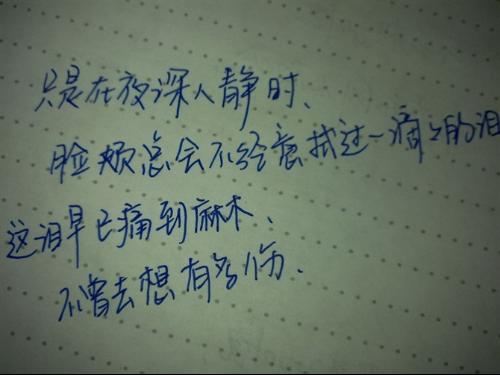 只是在夜深人静时、
脸颊总会不经意拭过一滴々的泪
这泪早已痛到麻木、
不曾去想有多伤.